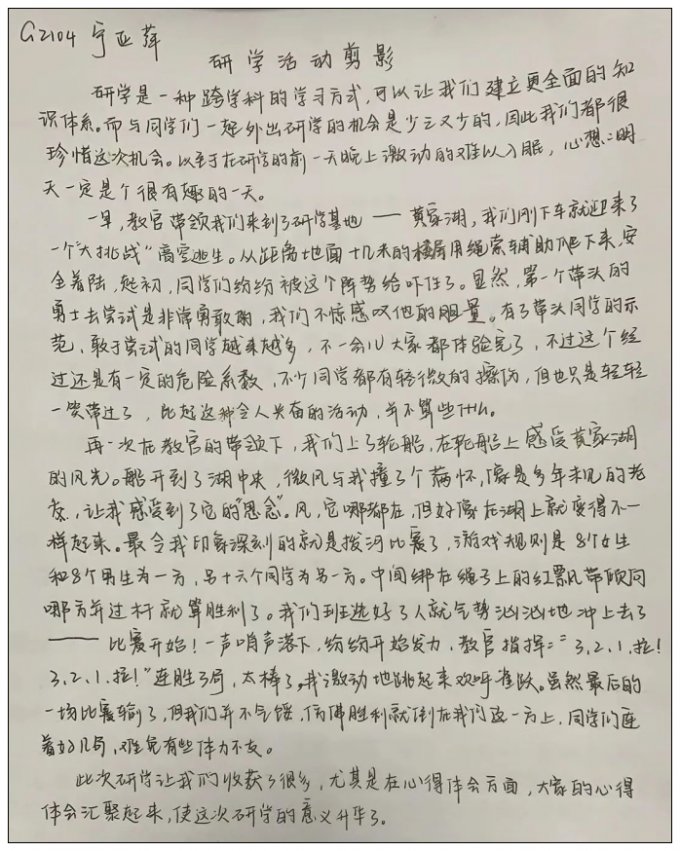 G2104 宁亚萍
研学活动剪影
研学是一种跨学科的学习方式,可以让我们建立更全面的知
识体系。而与同学们一起外出研学的机会是少之又少的,因此我们都很
珍惜这次机会。以至于在研学的前一天晚上激动的难以入眠,心想:明
天一定是个很有趣的一天。
一早,教官带领我们来到了研学基地——黄家湖,我们刚下车就迎来了
一个"大挑战"高空逃生。从距离地面十几米的楼层用绳索辅助爬下来,安
全着陆,起初,同学们纷纷被这个阵势给吓住了。显然,第一个带头的
勇士去尝试是非常勇敢的,我们不惊感叹他的胆量。有了带头同学的示
范,敢于尝试的同学越来越多,不一会儿大家都体验完了,不过这个经
过还是有一定的危险系数,不少同学都有轻微的擦伤,但也只是轻轻
一笑带过了,比起这种令人兴奋的活动,并不算些什么。
再一次在教官的带领下,我们上了轮船,在轮船上感受黄家湖
的风光。船开到了湖中央,微风与我撞了个满怀,像是多年未见的老
友,让我感受到了它的"思念"。风,它哪都在,但好像在湖上就变得不一
样起来。最令我印象深刻的就是拔河比赛了,游戏规则是8个女生
和8个男生为一方,另十六个同学为另一方。中间绑在绳子上的红飘带倾向
哪方并过杆就算胜利了。我们班选好了人就气势汹汹地冲上去了
——比赛开始!一声哨声落下,纷纷开始发力,教官指挥:"3,2,1,拉!
3,2,1,拉!"连胜3局,太棒了,我激动地跳起来欢呼雀跃。虽然最后的
一场比赛输了,但我们并不气馁,仿佛胜利就倒在我们这一方上,同学们连
着好几局,难免有些体力不支。
此次研学让我们收获了很多,尤其是在心得体会方面,大家的心得
体会汇聚起来,使这次研学的意义升华了。